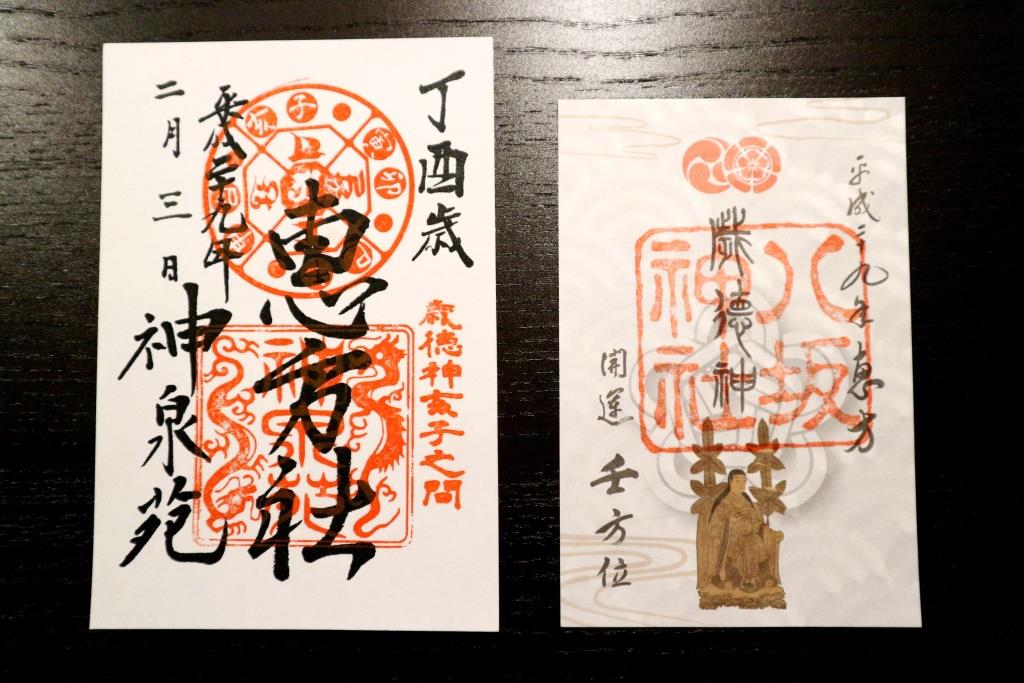 丁酉歳
歳徳神亥子之間
恵方社
神泉苑
平成二十九年
二月三日
神泉苑
子
寅
卯
亥
平成二十九年恵方
八坂
神社
歳德神
開運
壬方位